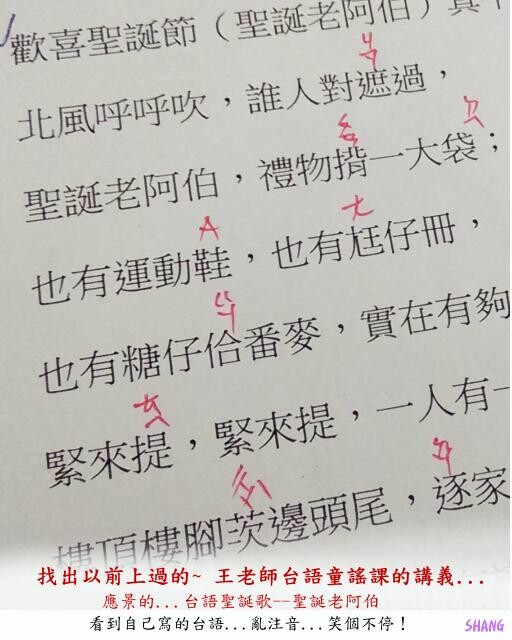 歡喜聖誕節（聖誕老阿伯）
北風呼呼吹，誰人對遮過，
聖誕老阿伯，禮物揹一大袋；
也有運動鞋，也有尪仔冊，
A
也有糖仔佮番麥，實在有夠
緊來提，緊來提，一人有一
樓頂樓腳茨邊頭尾，逐家
找出以前上過的~ 王老師台語童謠課的講義...
應景的...台語聖誕歌--聖誕老阿伯
看到自己寫的台語...亂注音...笑個不停！
SHANG